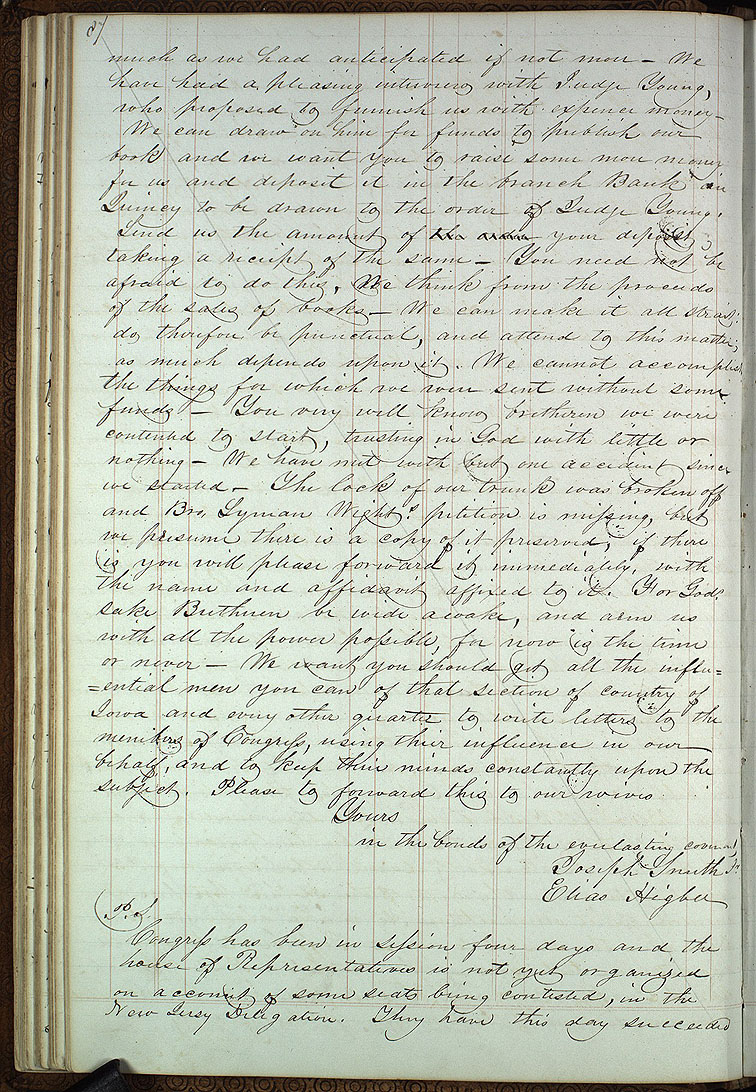 87
much as we had anticipated if not more — We
have had a pleasing interview with Judge Young,
who proposed to furnish us with expence money —
We can draw on him for funds to publish our
book and we want you to raise some more money
for us and deposit it in the branch Bank in
Quincy to be drawn to the order of Judge Young.
Send us the amount of the order your deposits,
taking a receipt of the same — You need not be
afraid to do this. We think from the proceeds
of the sales of books — We can make it all strait;
do therefore be punctual, and attend to this matter,
as much depends upon it. We cannot accomplish
the things for which we were sent without some
funds — You very well know bretheren we were
contented to start, trusting in God with little or
nothing — We have met with but one accident since
we started — The lock of our trunk was broken off
and Bro. Lyman Wight's petition is missing, but
we presume there is a copy of it preserved, if there
is, you will please forward it immediately, with
the name and affidavit affixed to it. For God's
sake Bretheren be wide awake, and arm us
with all the power possible, for now is the time
or never — We want you should get all the influ=
=ential men you can of that section of country of
Iowa and every other quarter to write letters to the
members of Congress, using their influence in our
behalf, and to keep their minds constantly upon the
subject. Please to forward this to our wives
Yours
in the bonds of the everlasting covenant
Joseph Smith Jr
Elias Higbee
P.S
Congress has been in session four days and the
house of Representatives is not yet organized
on account of some seats being contested, in the
New Jersy Deligation. They have this day succeeded